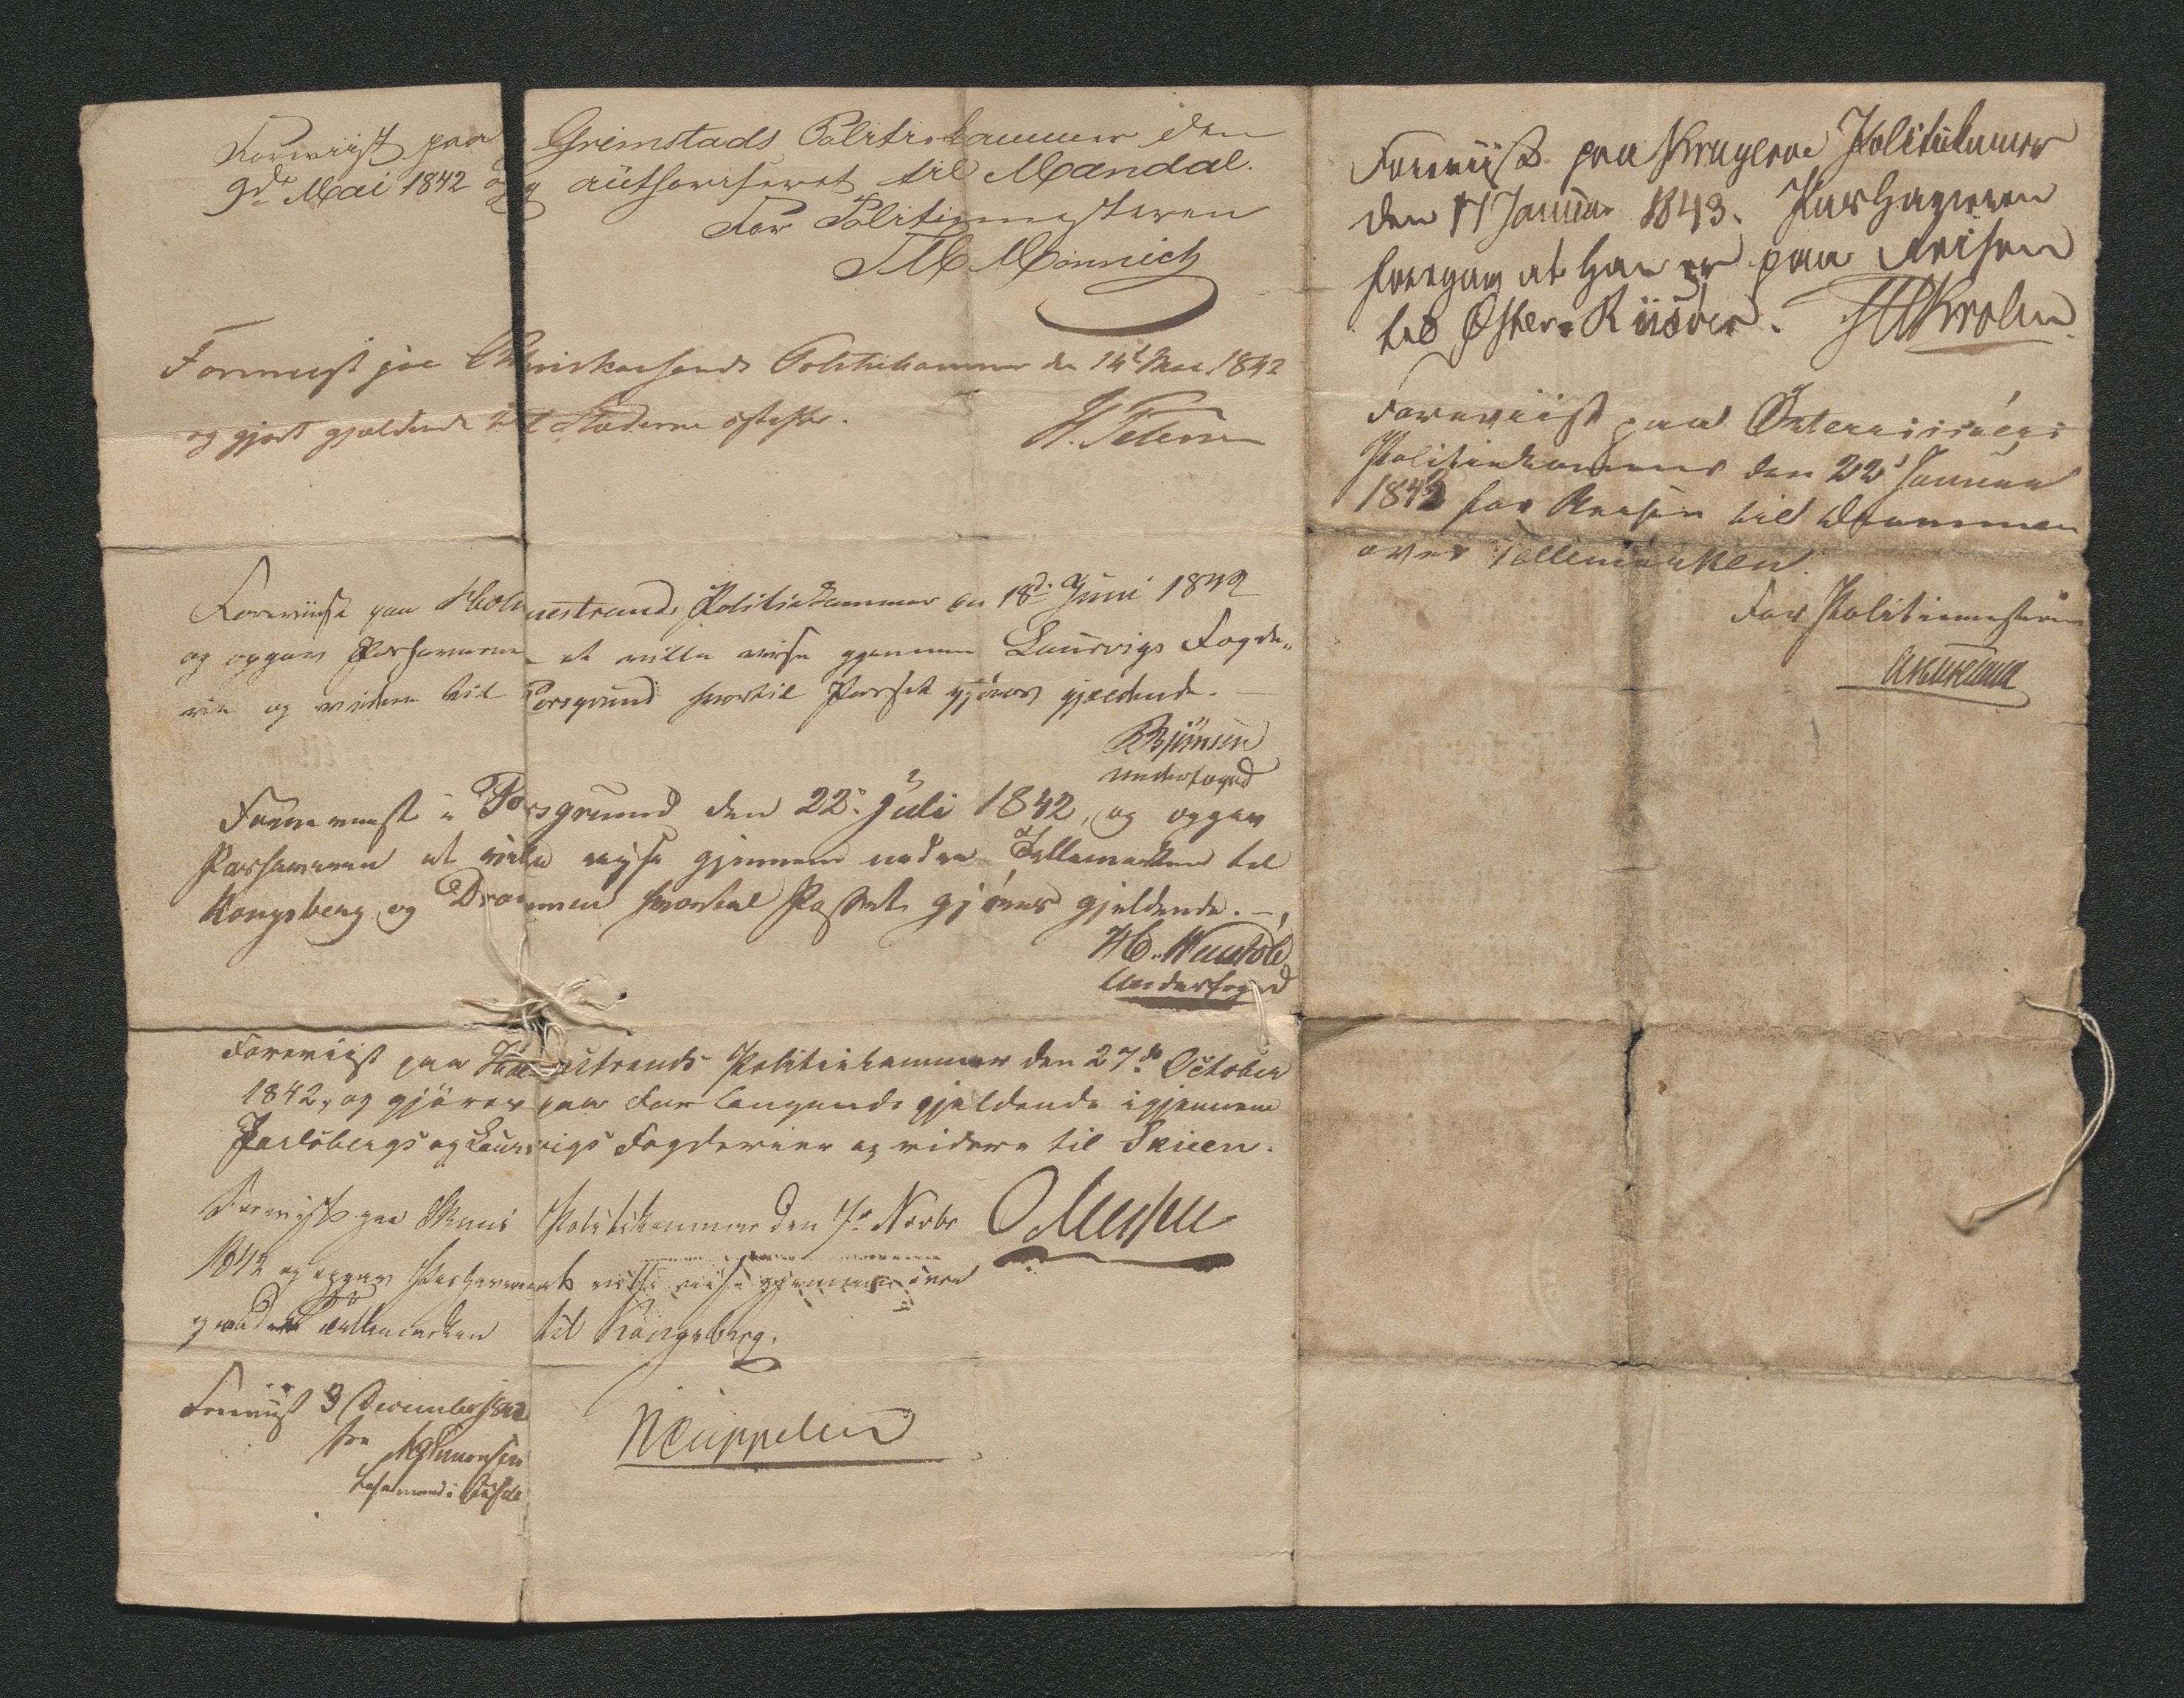 Foreviist paa Grimstads Politiekammer den
9de Mai 1842 og authoriseret til Mandal.
For Politiemesteren
M Mönnich
Forevist paa Christiansands Politiekammer den 14de Mai 1842
og gjort gjældende til Stæderne østefter.
H. Petersen
Foreviist paa Holmestrands Politiekammer den 18de Juni 1842
og opgav Passhaveren at ville reise gjennem Laurvigs Fogde„
rie og videre til Porsgrund hvortil Passet gjøres gjældende.
underfoged
Foreviist i Porsgrund den 22de Juli 1842, og opgav
Passhaveren at ville reise gjennem nedre Tellemarken til
Kongsberg og Drammen hvortil Passet gjøres gjeldende. –
Underfoged
Foreviist paa Holmestrands Politiekammer den 27de October
1842, og gjøres paa Forlangende gjeldende igjennem
Jarlsbergs og Laurvigs Fogderier og videre til Skien.
Forevist paa Skiens Politikammer den Novbr
1842 og opgav Passhaveren at ville reise gjennem øvre
og nedre Tellemarken til Kongsberg.
Foreviist 3 December 1842
Lensmand i
Foreviist paa Kragerøe Politikamer
den 17 Januar 1843. Passhaveren
foregav at han er paa Reisen
til Øster-Riisöer. Krohn
Foreviist paa Österriisöers
Politiekammer den 22de Januar
1843 for Reisen til Drammen
over Tellemarken.
For Politiemesteren